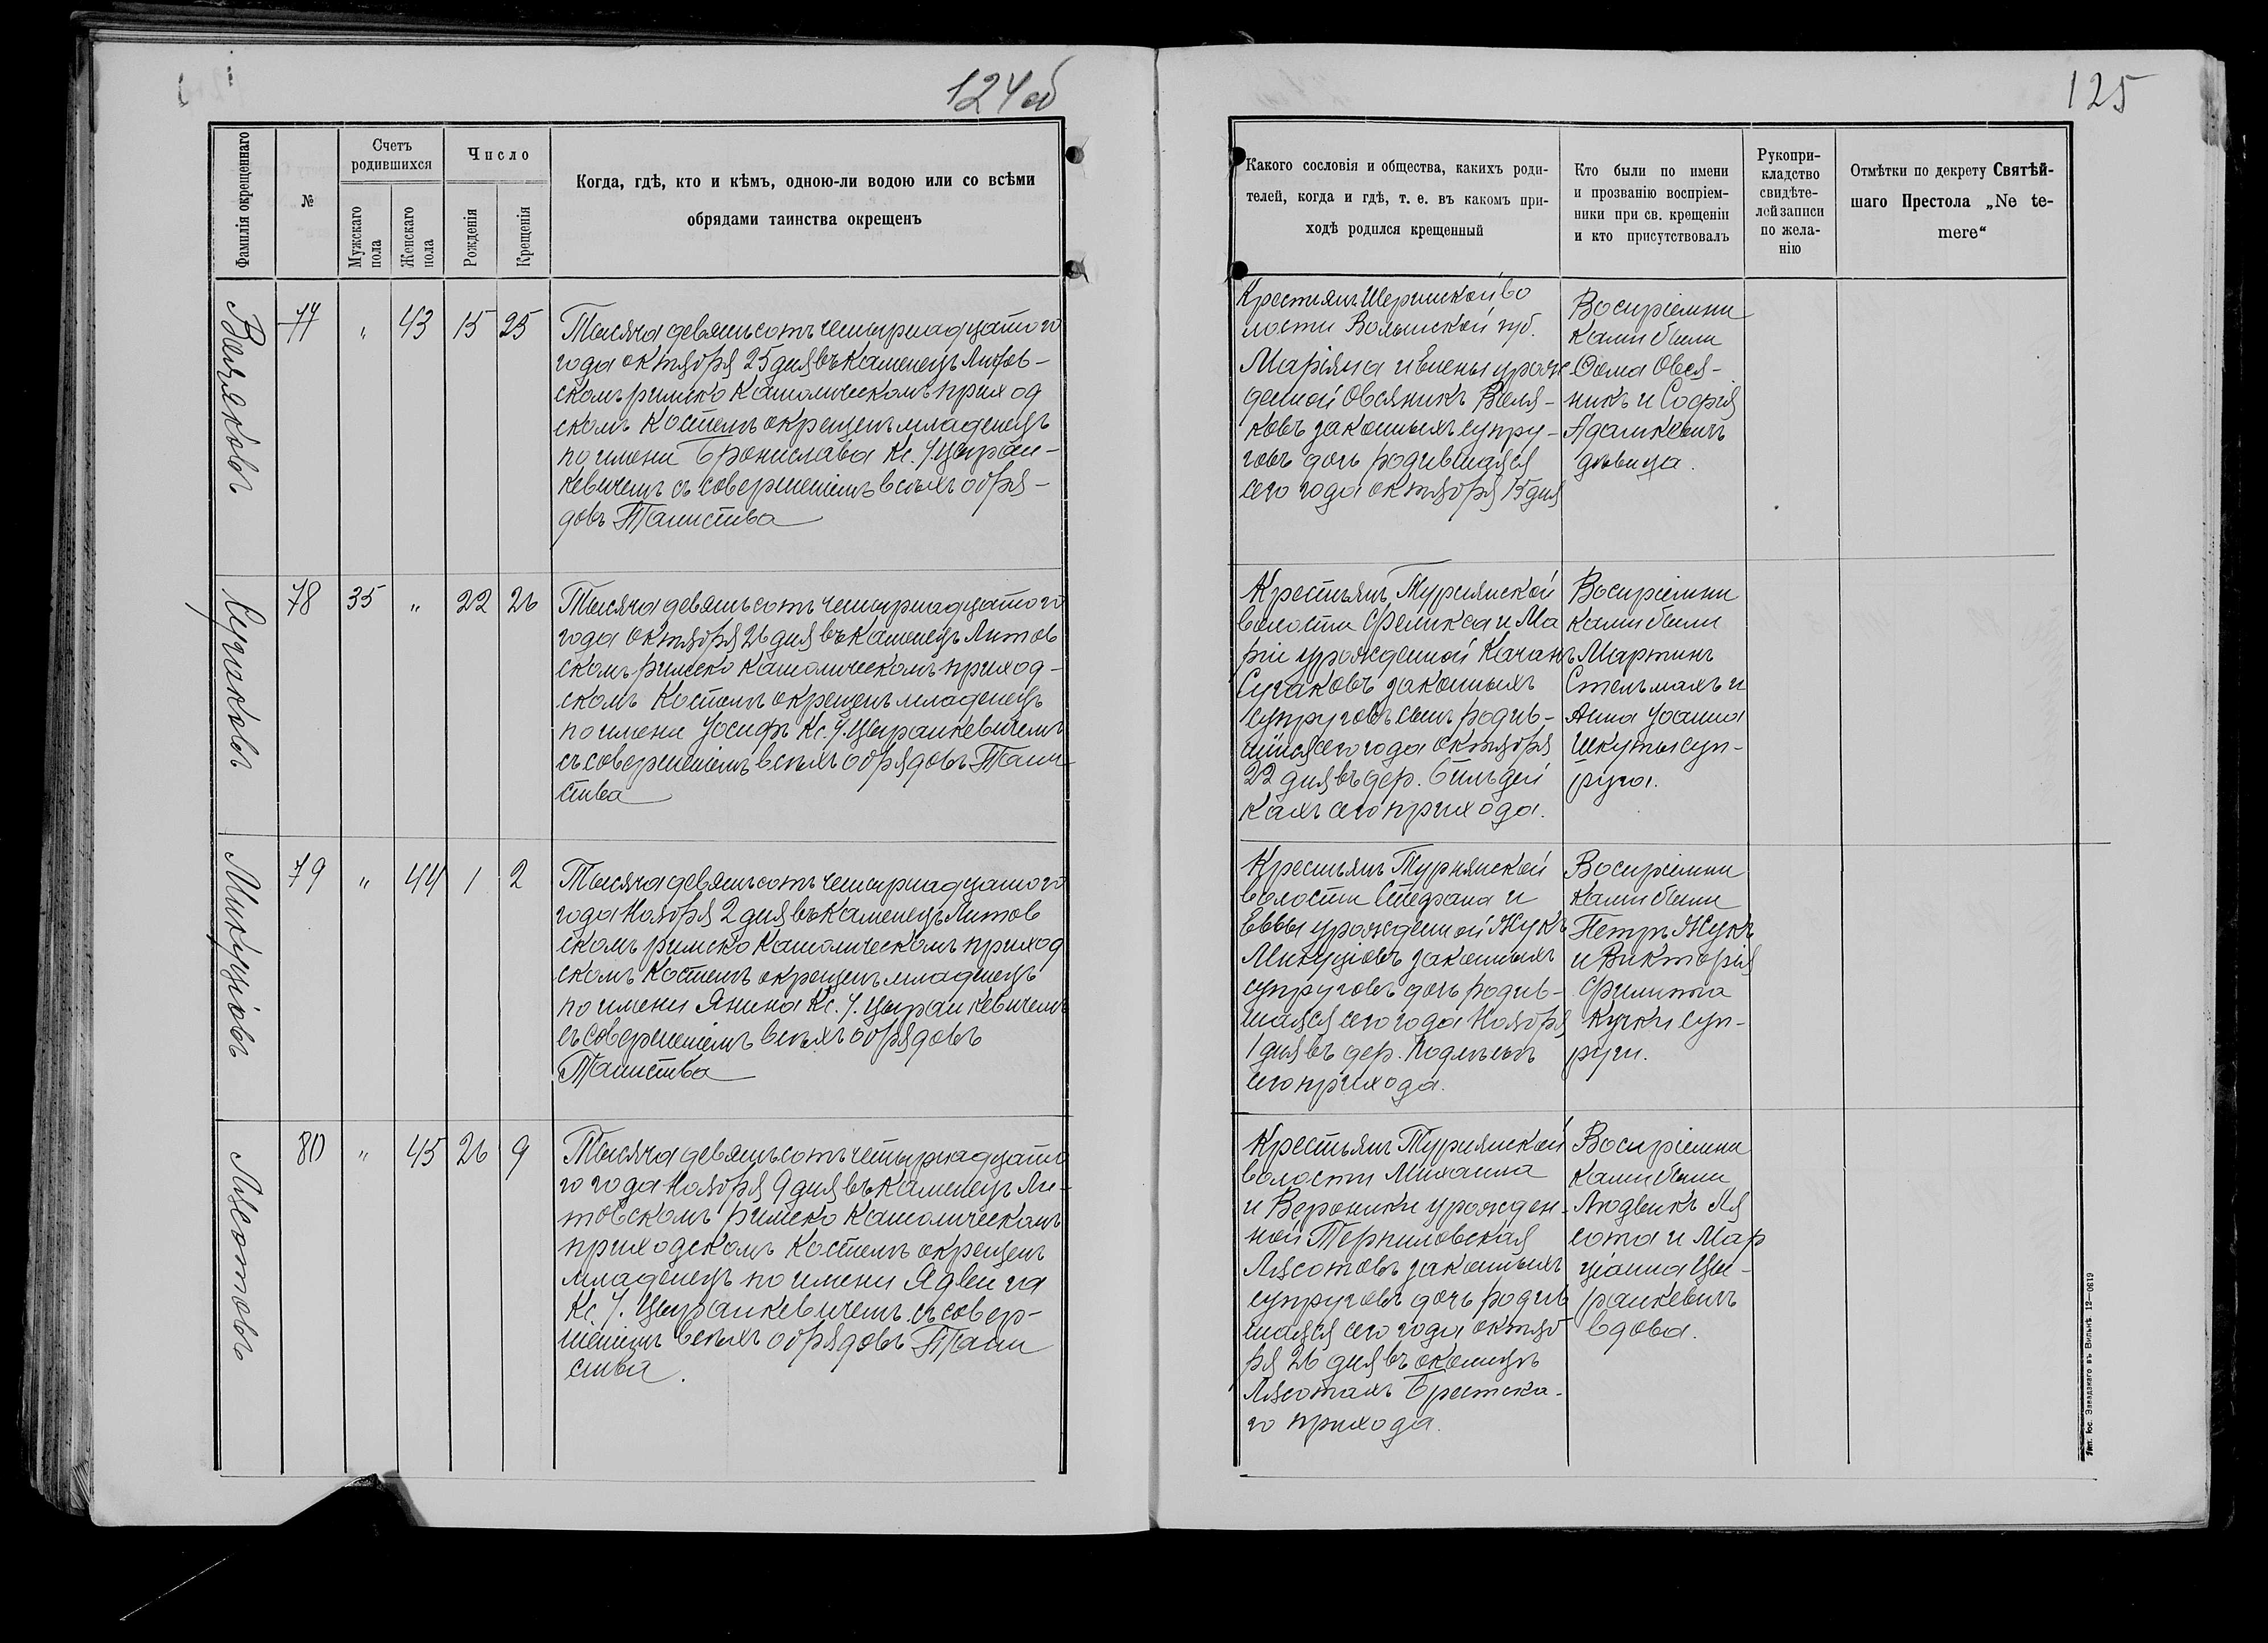 124 об
Фамилія окрещеннаго
№
Счетъ
родившихся
Мужскаго пола
Женскаго пола
Число
Рожденія
Крещенія
Когда, гдѣ, кто и кѣмъ, одною-ли водою или со всѣми
обрядами таинства окрещенъ
77 „ 43 15 25
Тысяча девятьсотъ четырнадцатого
года октября 25 дня въ Каменецъ Литов-
скомъ римско католическомъ приход
скомъ костелѣ окрещенъ младенецъ
по имени Бронислава Кс. І. Цыран-
кевичемъ съ совершеніемъ всѣхъ обря-
довъ Таинства
Сугаковъ
78 35 „ 22 26
Тысяча девятьсотъ четырнадцатого
года октября 26 дня въ Каменецъ Литов
скомъ римско католическомъ приход-
скомъ костелѣ окрещенъ младенецъ
по имени Іосифъ Кс. І. Цыранкевичемъ
съ совершеніемъ всѣхъ обрядовъ Таин
ства
Микуціовъ
79 „ 44 1 2
Тысяча девятьсотъ четырнадцатого
года Ноября 2 дня въ Каменецъ Литов
скомъ римско католическомъ приход
скомъ костелѣ окрещенъ младенецъ
по имени Янина Кс. І. Цыранкевичемъ
съ совершеніемъ всѣхъ обрядовъ
Таинства
Лясотовъ
80 „ 45 26 9
Тысяча девятьсотъ четырнадцато
го года Ноября 9 дня въ Каменецъ Ли-
товскомъ римско католическомъ
приходскомъ костелѣ окрещенъ
младенецъ по имени Ядвига
Кс. І. Цыранкевичемъ съ совер-
шеніемъ всѣхъ обрядовъ Таин
ства.
125
Какого сословія и общества, какихъ роди-
телей, когда и гдѣ, т. е. въ какомъ при-
ходѣ родился крещенный
Кто были по имени
и прозванію воспріем-
ники при св. крещеніи
и кто присутствовалъ
Рукопри-
кладство
свидѣте-
лей записи
по жела-
нію
Отмѣтки по декрету Святѣй-
шаго Престола „Ne te-
mere“
Крестьянъ во
лости Волынской губ.
Маріяна и урож
денной Овсяникъ
ковъ законныхъ супру-
говъ дочь родившаяся
сего года октября 15 дня
Воспріемни
ками были
Ѳома Овся-
никъ и Софія
Адамкевичъ
дѣвица.
Крестьянъ Турнянской
волости Феликса и Ма
ріи урожденной Качанъ
Сугаковъ законныхъ
супруговъ сынъ родив-
шійся сего года октября
22 дня въ дер.
кахъ сего прихода.
Воспріемни
ками были
Мартинъ
Стельмахъ и
Анна Іоанна
Шкуты суп-
руга.
Крестьянъ Турнянской
волости Стефана и
Еввы урожденной Жукъ
Микуціовъ законныхъ
супруговъ дочь родив-
шаяся сего года Ноября
1 дня въ дер.
сего прихода.
Воспріемни
ками были
Петръ Жукъ
и Викторія
Филиппа
Кучки суп-
руги.
Крестьянъ Турнянской
волости Михаила
и Вероники урожден-
ной Терпиловская
Лясотовъ законныхъ
супруговъ дочь родив
шаяся сего года октяб
ря 26 дня въ околицѣ
Лясотахъ Брестска-
го прихода.
Воспріемни
ками были
Людвикъ Ля
сота и Мар
ціанна Цы-
ранкевичъ
вдова.
Тип. Іос. Завадзкаго въ Вильнѣ 12—0619